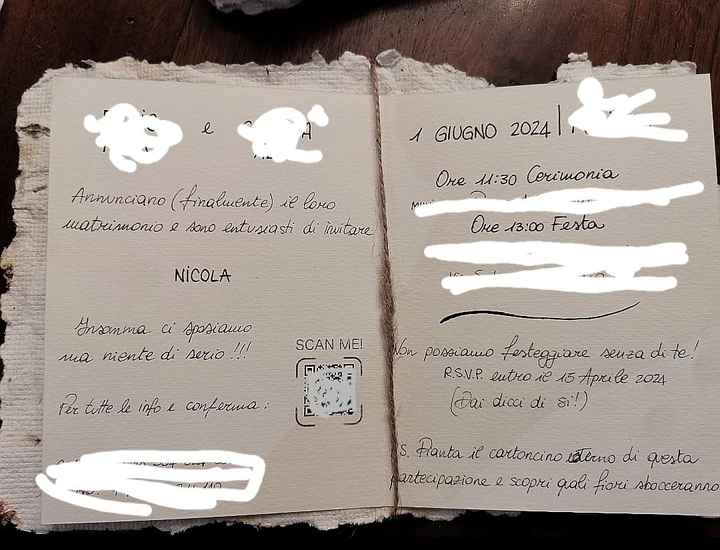 e
Annunciano (finalmente) il loro
matrimonio e sono entusiasti di invitare
NICOLA
Insomma ci sposiamo
ma niente di serio !!!
SCAN ME!
Per tutte le info e conferma :
1 GIUGNO 2024 |
Ore 11:30 Cerimonia
Ore 13:00 Festa
Non possiamo festeggiare senza di te!
R.S.V.P. entro il 15 Aprile 2024
(Dai dicci di si!!)
S. Pianta il cartoncino esterno di questa
partecipazione e scopri quali fiori sbocceranno